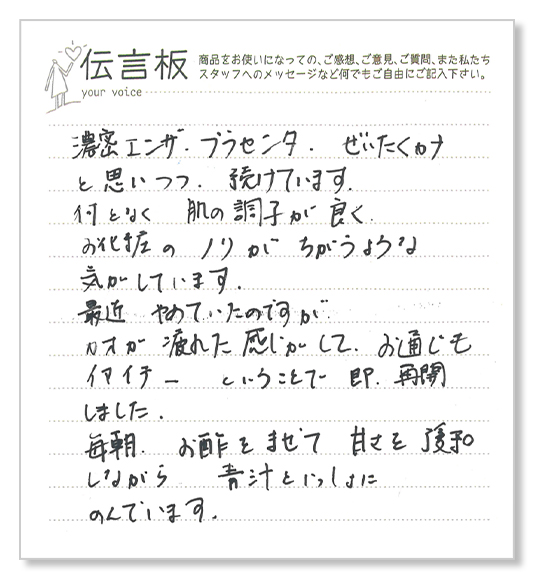 伝言板
your voice
商品をお使いになっての、ご感想、ご意見、ご質問、また私たち
スタッフへのメッセージなど何でもご自由にご記入下さい。
濃密エンザ・プラセンタ. ぜいたくかナ
と思いつつ. 続けています.
何となく 肌の調子が良く.
お化粧の ノリが ちがうような
気がしています.
最近 やめていたのですが
カオが 疲れた感じがして. お通じも
イマイチー ということで 即. 再開
しました.
毎朝. お酢をまぜて 甘さを 緩和
しながら 青汁といっしょに
のんでいます.